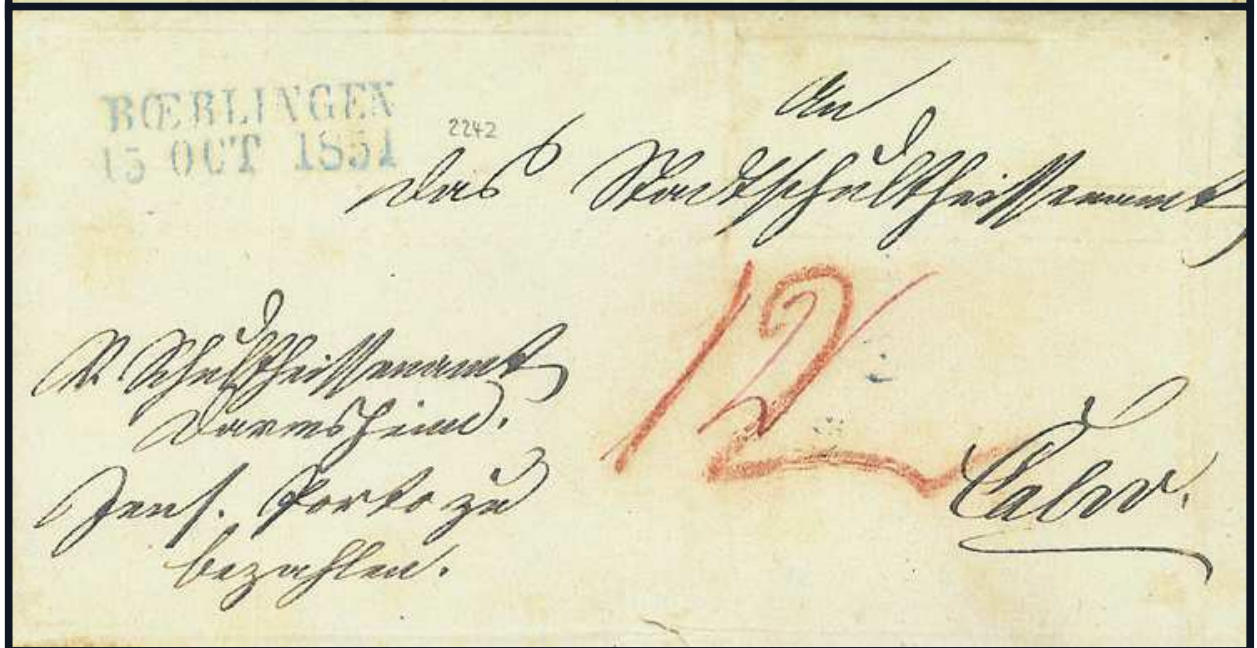 BŒBLINGEN
15 OCT 1851
2242
An
das Stadtschultheissenamt
12
Schultheissenamt
Darmsheim.
Jens. Porto zu
bezahlen.
Calw.